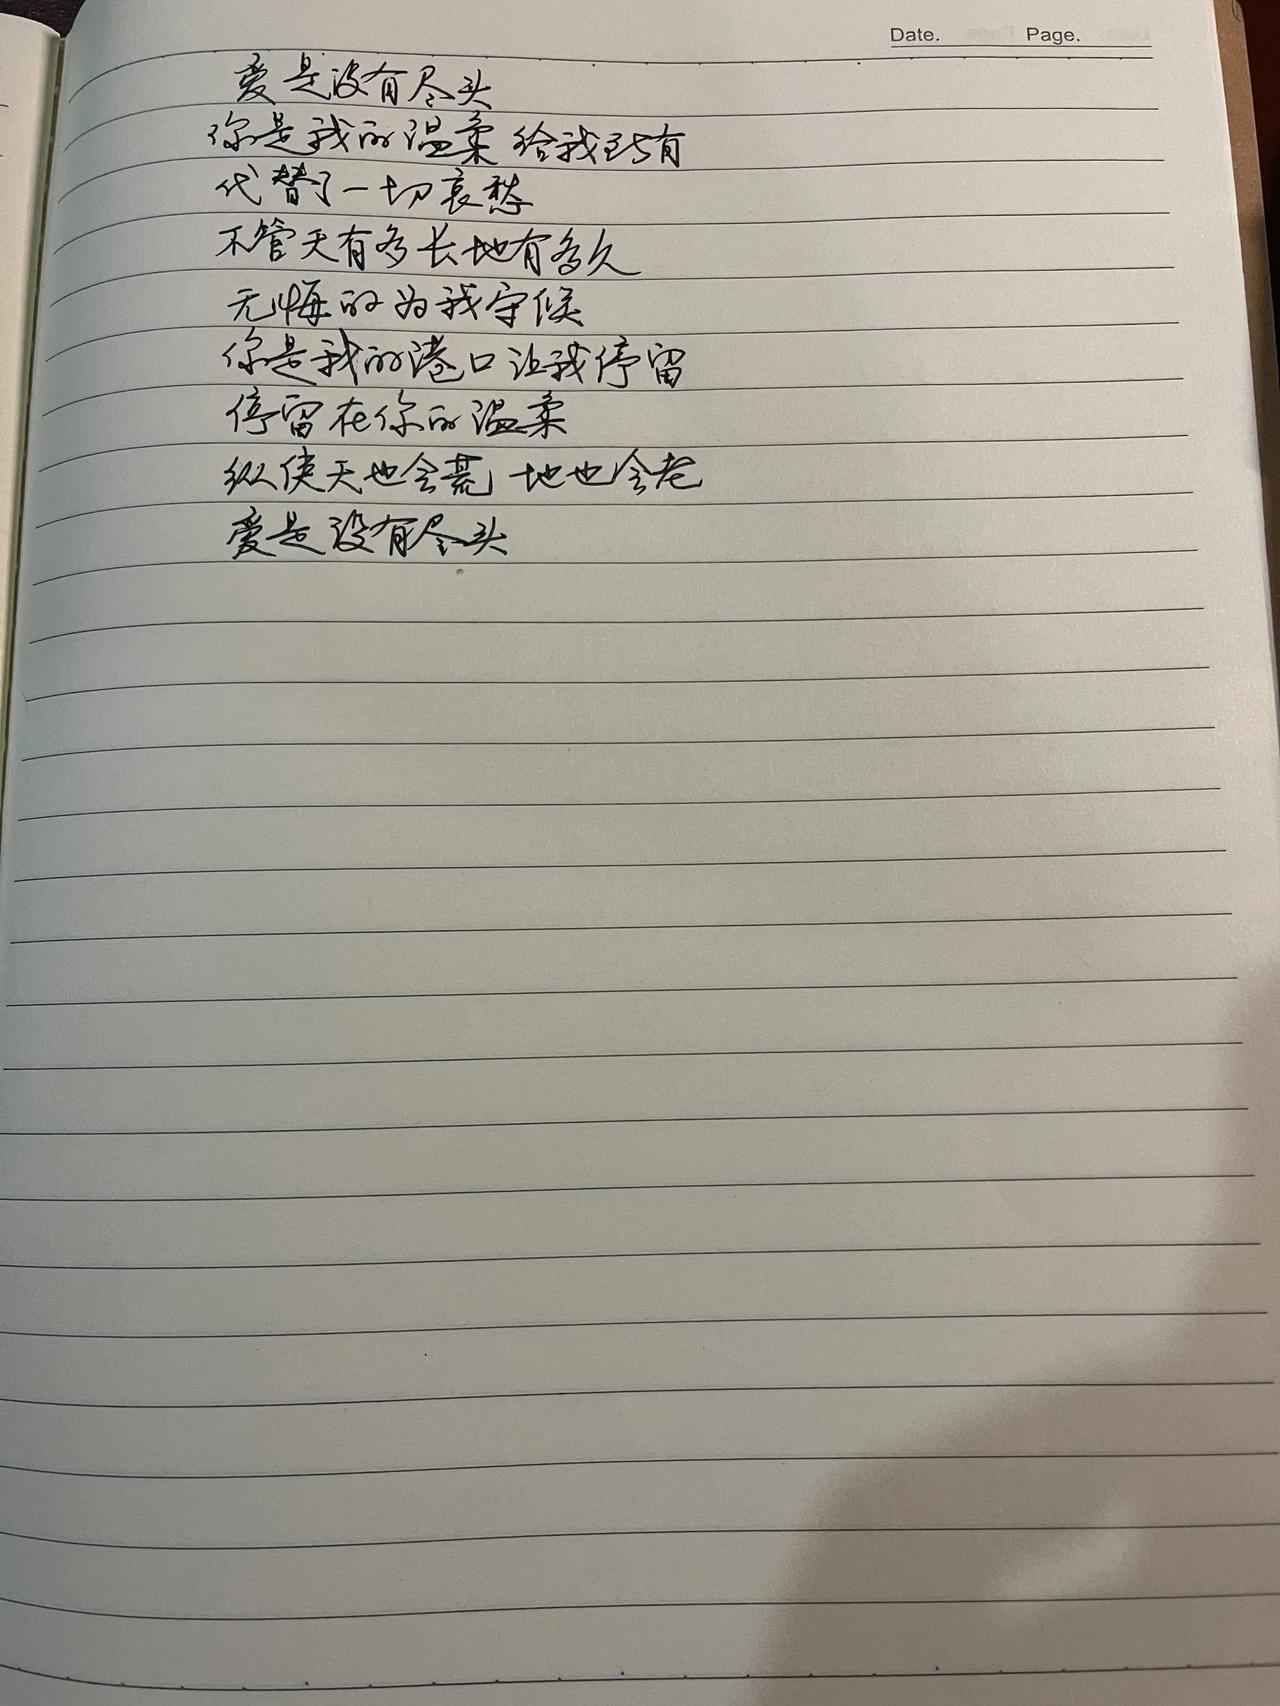 Date. Page.
爱是没有尽头
你是我的温柔 给我所有
代替了一切哀愁
不管天有多长地有多久
无悔的为我守候
你是我的港口让我停留
停留在你的温柔
纵使天也会荒 地也会老
爱是没有尽头